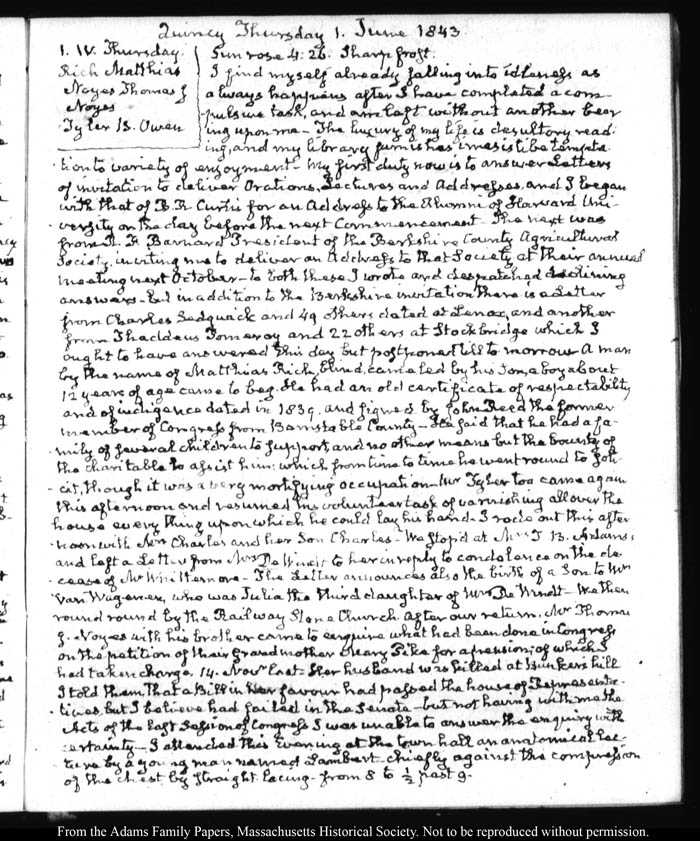 Quincy Thursday 1. June 1843
1. IV. Thursday.
Rich Matthias
Noyes Thomas J
Noyes
Tyler B. Owen
Sun rose 4:26. Sharp frost.
I find myself already falling into idleness as
always happens after I have completed a com-
pulsive task, and am left without another bear-
ing upon me - The luxury of my life is desultory read-
ing, and my library furnishes irresistible tempta-
tion to variety of enjoyment - My first duty now is to answer Letters
of invitation to deliver Orations, Lectures and Addresses, and I began
with that of B. R. Curtis for an Address to the Alumni of Harvard Uni-
versity on the day before the next Commencement - The next was
from Barnard President of the Berkshire County Agricultural
Society, inviting me to deliver an Address to that Society at their annual
meeting next October - to both these I wrote and despatched declining
answers - but in addition to the Berkshire invitation there is a Letter
from Charles Sedgwick and 49 others dated at Lenox, and another
from Thaddeus Pomeroy and 22 others at Stockbridge which I
ought to have answered this day but postponed till to morrow. A man
by the name of Matthias Rich, blind, came led by his Son, a boy about
12 years of age came to beg. He had an old certificate of respectability
and of indigence dated in 1839. and signed by John Reed the former
member of Congress from Barnstable County - He said that he had a fa-
mily of several children to support, and no other means but the bounty of
the charitable to assist him: which from time to time he went round to soli-
cit, though it was a very mortifying occupation - Mr Tyler too came again
this afternoon and resumed his volunteer task of varnishing all over the
house every thing upon which he could lay his hand - I rode out this after-
noon with Mrs Charles and her Son Charles - We stop'd at Mrs T. B. Adams's
and left a Letter from Mrs De Windt to her in reply to condolence on the de-
cease of Mr Whittemore - The Letter announces also the birth of a Son to Mrs
Van Wagenen, who was Julia the third daughter of Mrs De Windt - We then
round round by the Railway Stone Church. After our return, Mr Thomas
J. Noyes with his brother came to enquire what had been done in Congress
on the petition of their Grandmother Mary Pike for a pension; of which I
had taken charge, 14. Novr last - Her husband was killed at Bunkers hill
I told them that a Bill in her favour had passed the house of Represent-
tives, but I believe had failed in the Senate - but not having with me the
Acts of the last Session of Congress I was unable to answer the enquiry with
certainty - I attended this Evening at the town hall an anatomical Lec-
ture by a young man named Lambert - chiefly against the compression
of the chest by straight lacing - from 8 to ½ past 9.
From the Adams Family Papers, Massachusetts Historical Society. Not to be reproduced without permission.